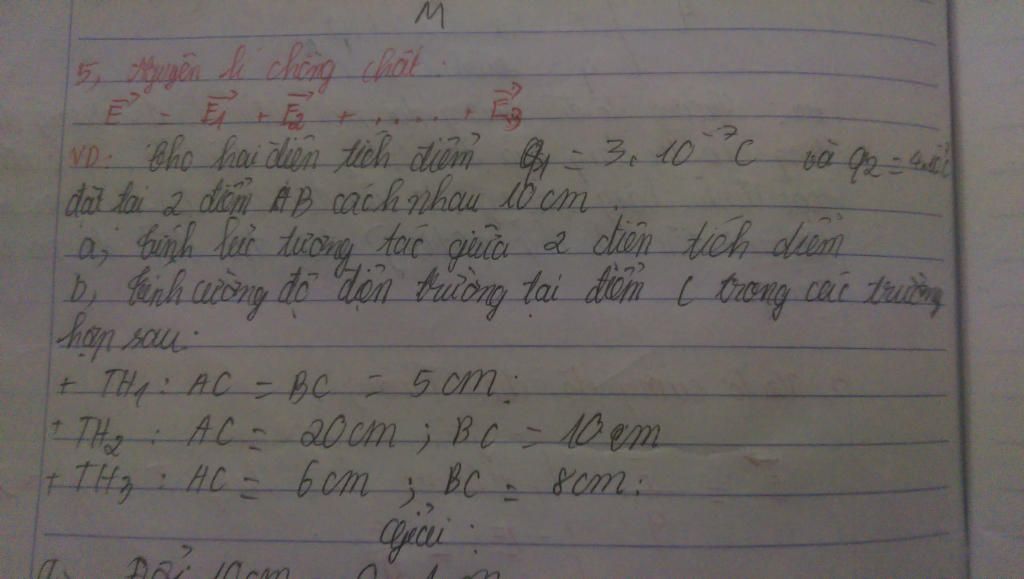 M
5, Nguyên lí chồng chất:
E = E1 + E2 + .... + E3
VD: Cho hai điện tích điểm q1 = 3.10⁻⁷C và q2 =
đặt tại 2 điểm AB cách nhau 10cm.
a, tính lực tương tác giữa 2 điện tích điểm
b, tính cường độ điện trường tại điểm C trong các trường
hợp sau:
+ TH1 : AC = BC = 5cm;
+ TH2 : AC = 20cm ; BC = 10cm
+ TH3 : AC = 6cm ; BC = 8cm;
Giải :
a, Đổi 10cm = 0,1m